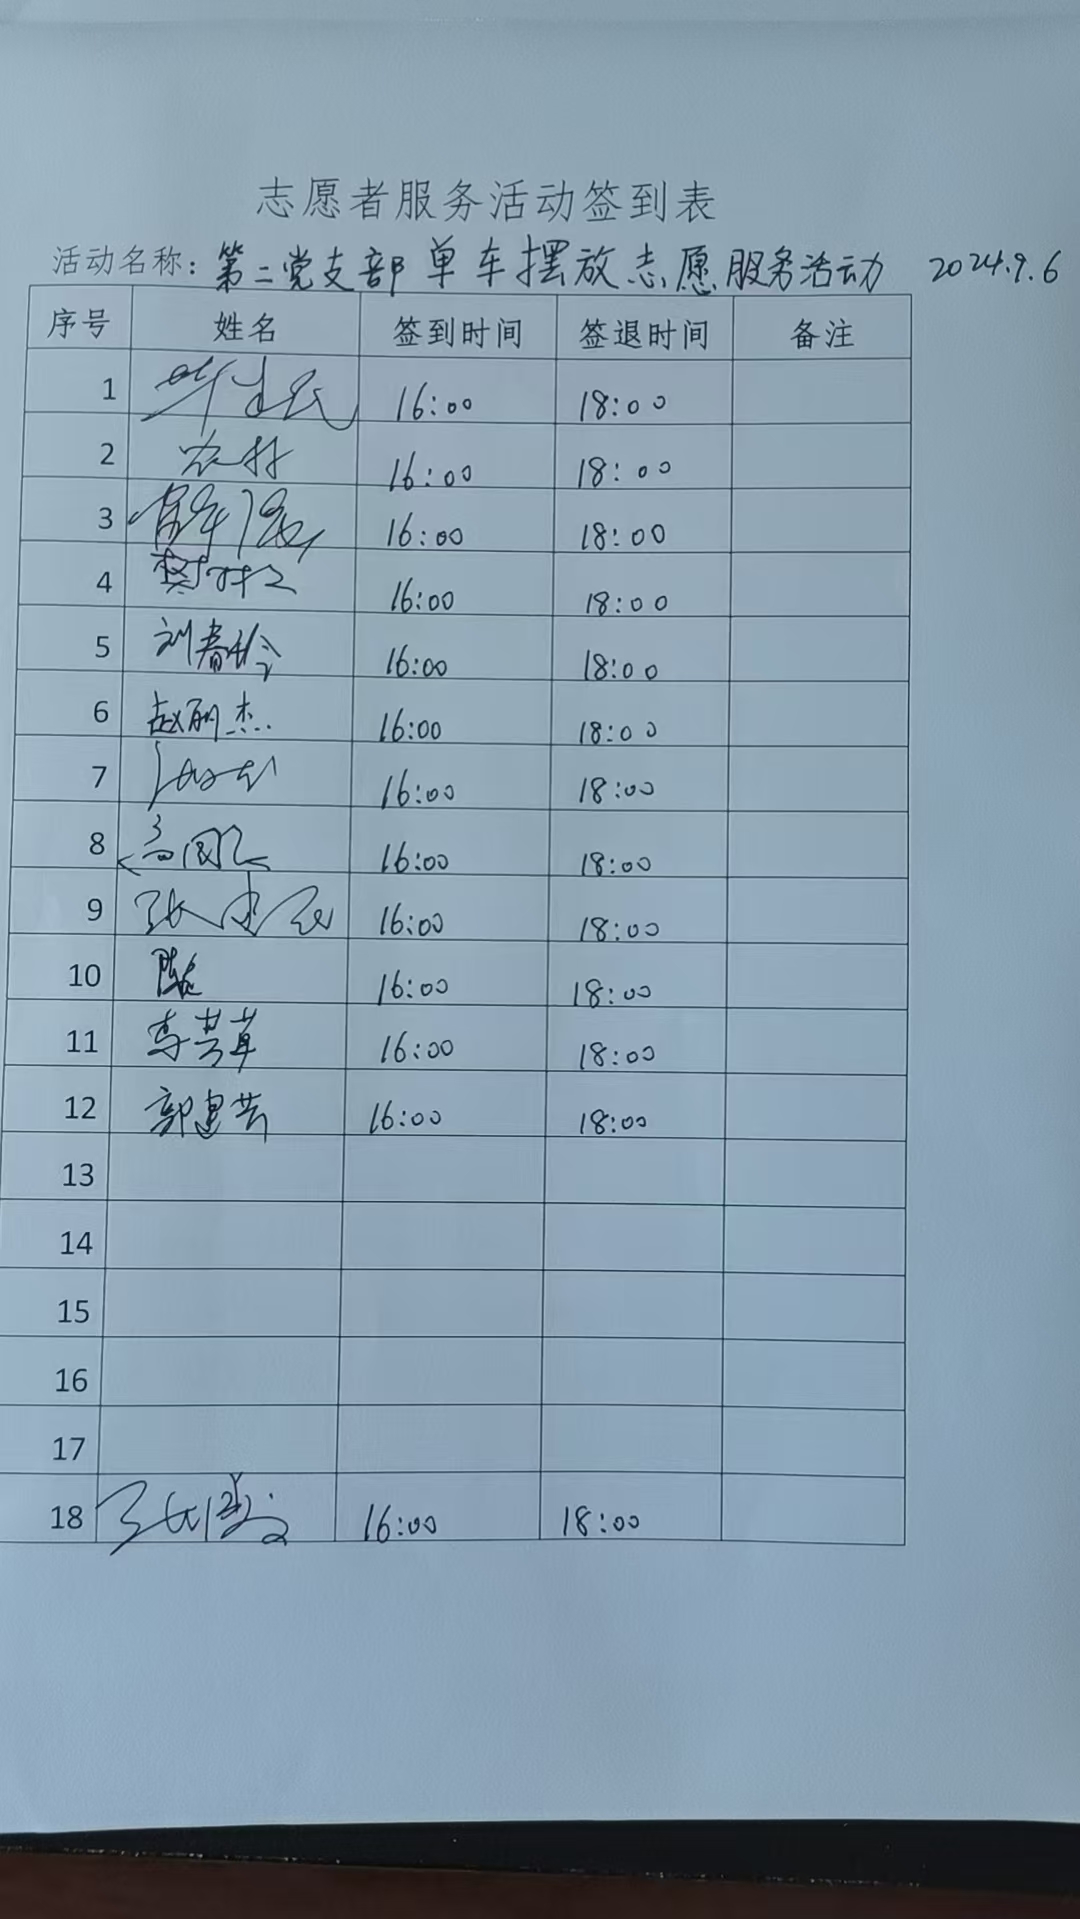 志愿者服务活动签到表
活动名称：第二党支部单车摆放志愿服务活动 2024.9.6
序号 姓名 签到时间 签退时间 备注
1 16:00 18:00
2 16:00 18:00
3 16:00 18:00
4 16:00 18:00
5 刘春玲 16:00 18:00
6 赵丽杰 16:00 18:00
7 16:00 18:00
8 16:00 18:00
9 16:00 18:00
10 16:00 18:00
11 李芸草 16:00 18:00
12 郭建芸 16:00 18:00
13
14
15
16
17
18 16:00 18:00